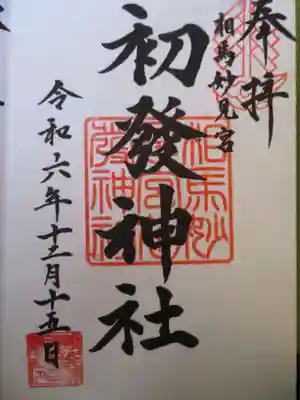 奉拝
相馬妙見宮
初發神社
令和六年十二月十五日